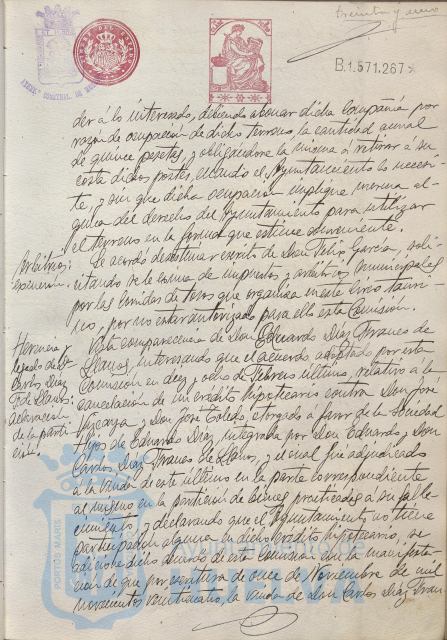 treinta y
B.1.571.267
der á lo interesado, debiendo abonar dicha Compañía por
razón de ocupación de dicho terreno, la cantidad anual
de quince pesetas, y obligándose la misma á retirar á su
costa dichos postes, cuando el Ayuntamiento lo necesi-
te, y sin que dicha ocupación implique merma al-
guna del derecho del Ayuntamiento para utilizar
el terreno en la forma que estime conveniente.
Arbitrios:
exención.
Se acordó desestimar escrito de Don Felix García, soli-
citando se le exima de impuestos y arbitrios municipales
por las corridas de toros que organiza en este Circo tauri-
no, por no estar autorizado para ello esta Comisión.
Herencia y
legado de Dn
Carlos Diaz
F. de Llanos:
aclaración
de la parti-
Vista comparecencia de Don Eduardo Díaz Franco de
Llanos, interesando que el acuerdo adoptado por esta
Comisión en diez y ocho de Febrero último, relativo á la
cancelación de un crédito hipotecario contra Don José
y Don José Toledo, otorgado á favor de la Sociedad
Hijos de Eduardo Díaz, integrada por Don Eduardo y Don
Carlos Díaz Franco de Llanos, y el cual fué adjudicado
á la viuda de este último en la parte correspondiente
al mismo en la partición de bienes practicada á su falle-
cimiento, y declarando que el Ayuntamiento no tiene
participación alguna en dicho crédito hipotecario, se
adicione dicho acuerdo de esta Comisión en la manifesta-
ción de que por escritura de once de Noviembre de mil
novecientos veinticuatro, la viuda de Don Carlos Díaz Fran
PORTUS MARIS
Ayuntamiento de